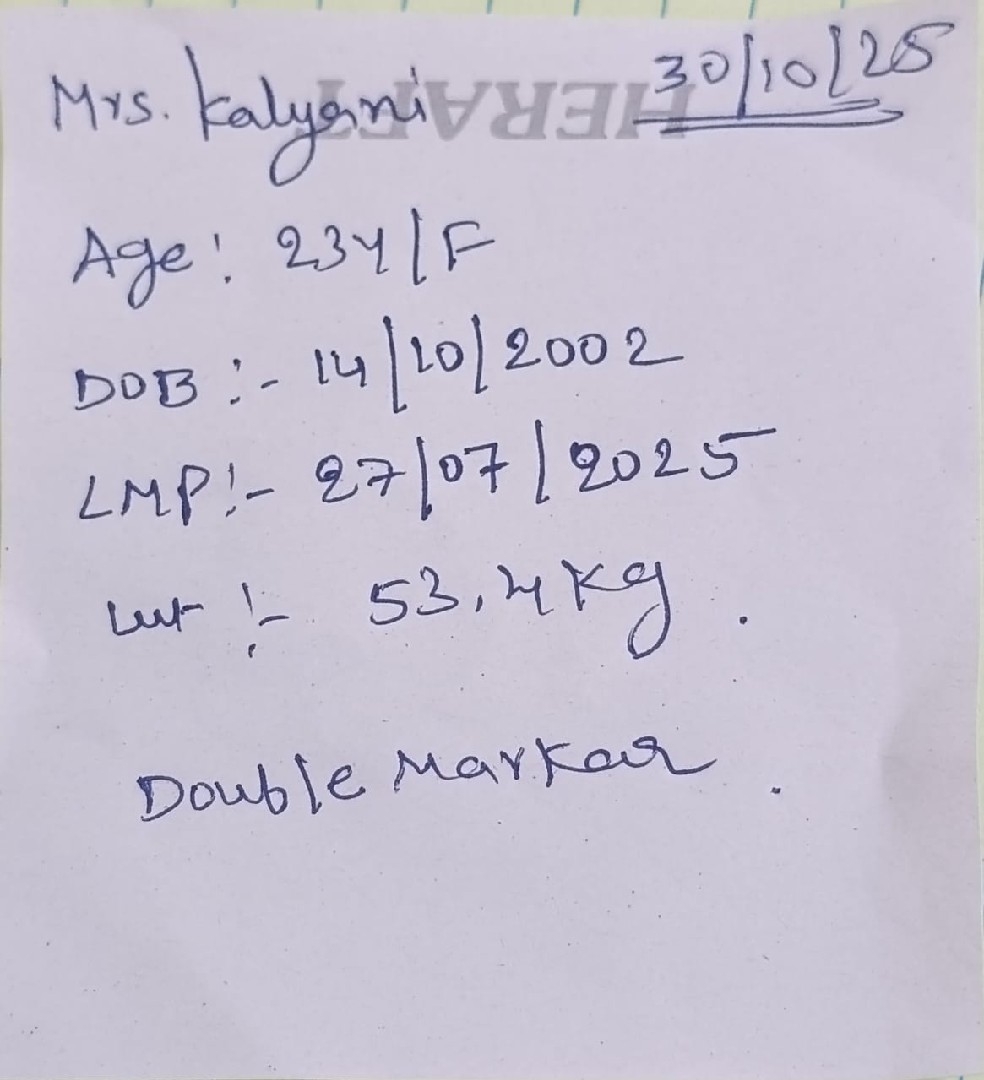 Mrs. Kalyani 30/10/25
Age: 23y/F
DOB :- 14/10/2002
LMP :- 27/07/2025
wt :- 53.4 kg.
Double Markar.